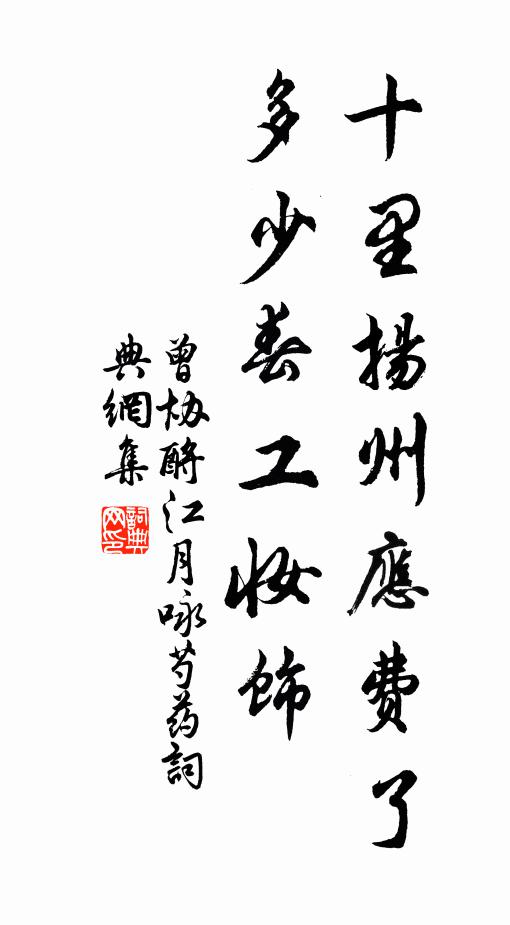 十里揚州應費了
多少春工妝飾
曾協酹江月咏芍药詞
典網集
詞典网印